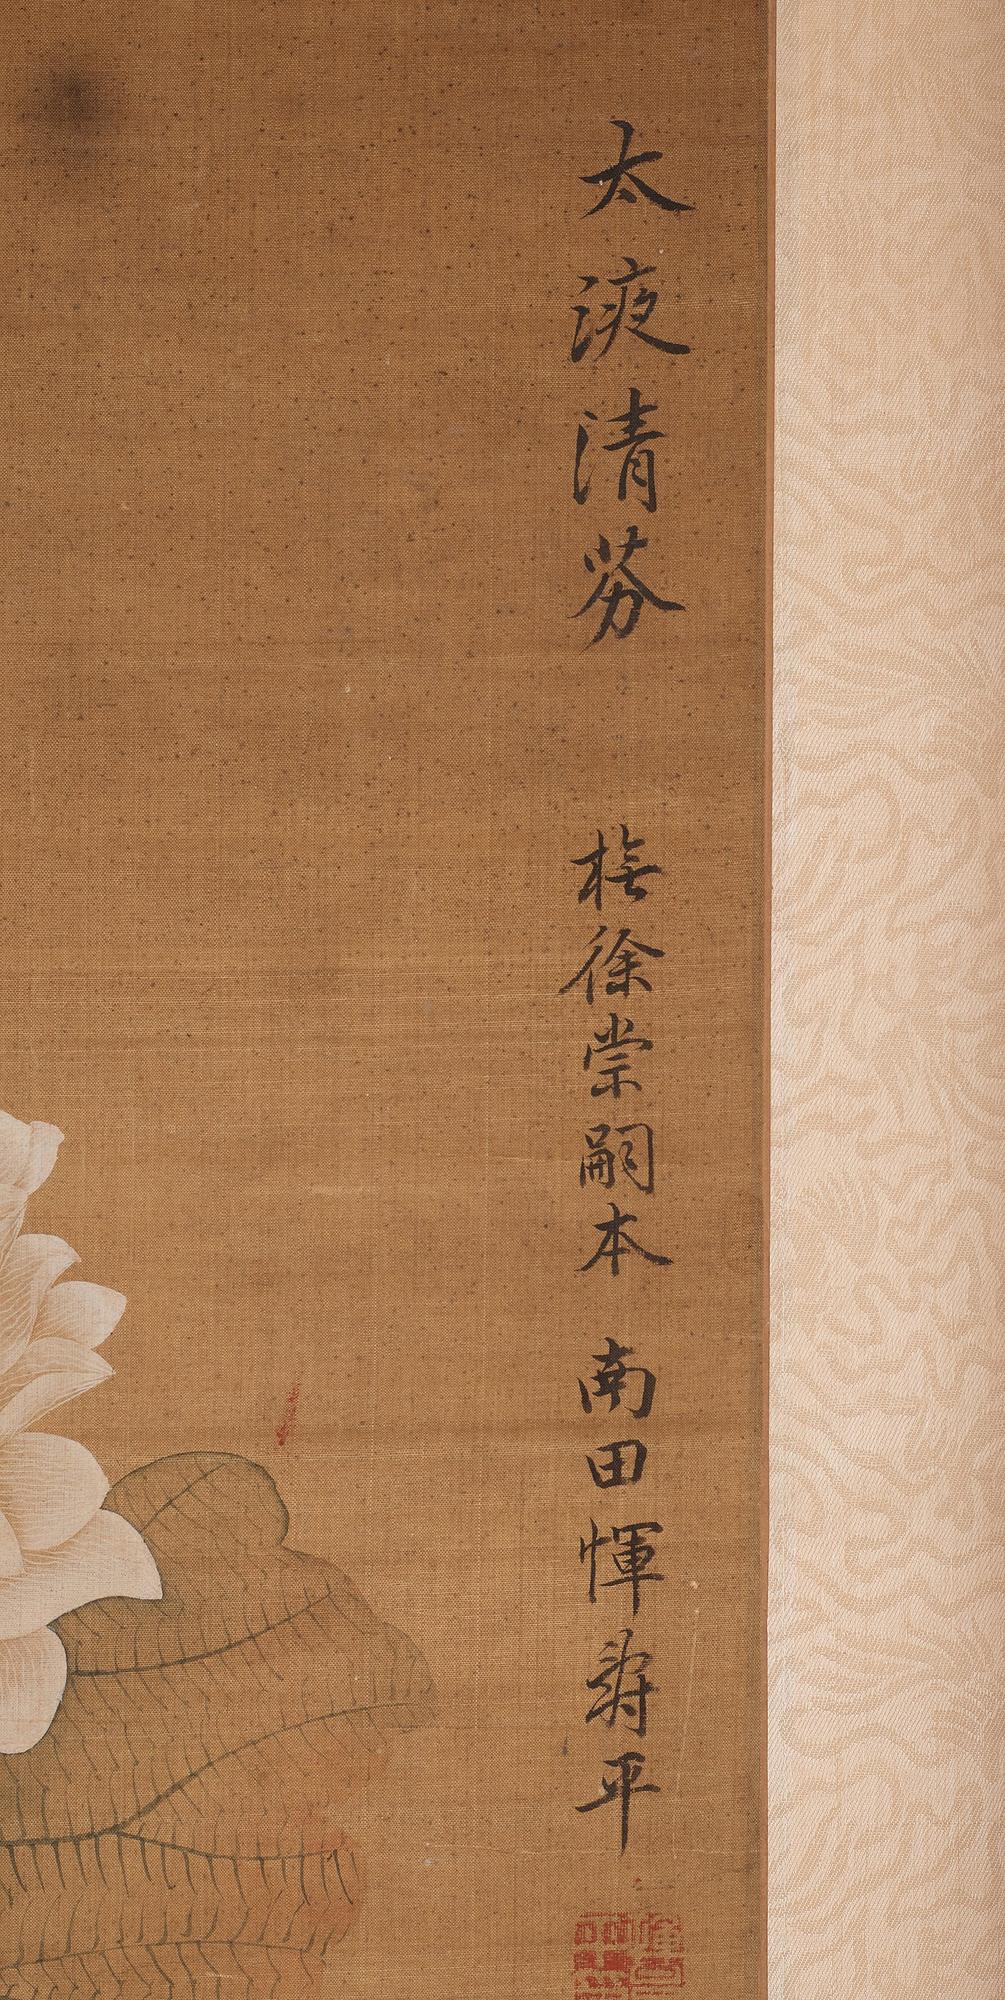 太液清芬 橅徐崇嗣本 南田惲壽平